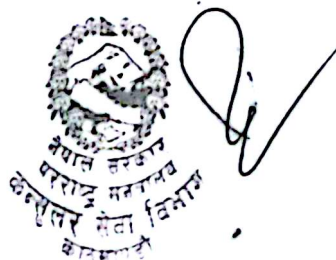 नेपाल सरकार
परराष्ट्र मन्त्रालय
कन्सुलर सेवा विभाग
काठमाण्डौ